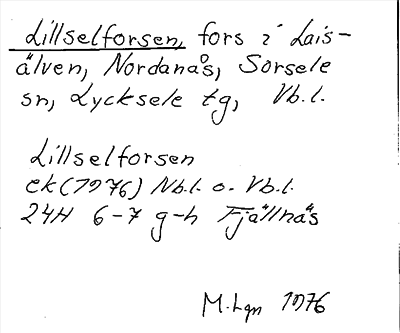 Lillselforsen, fors i Lais-
älven, Nordanås, Sorsele
sn, Lycksele tg, Vb.l.
Lillselforsen
ek (1976) Nb.l. o. Vb.l.
24H 6-7 g-h Fjällnäs
M.Lgn 1976